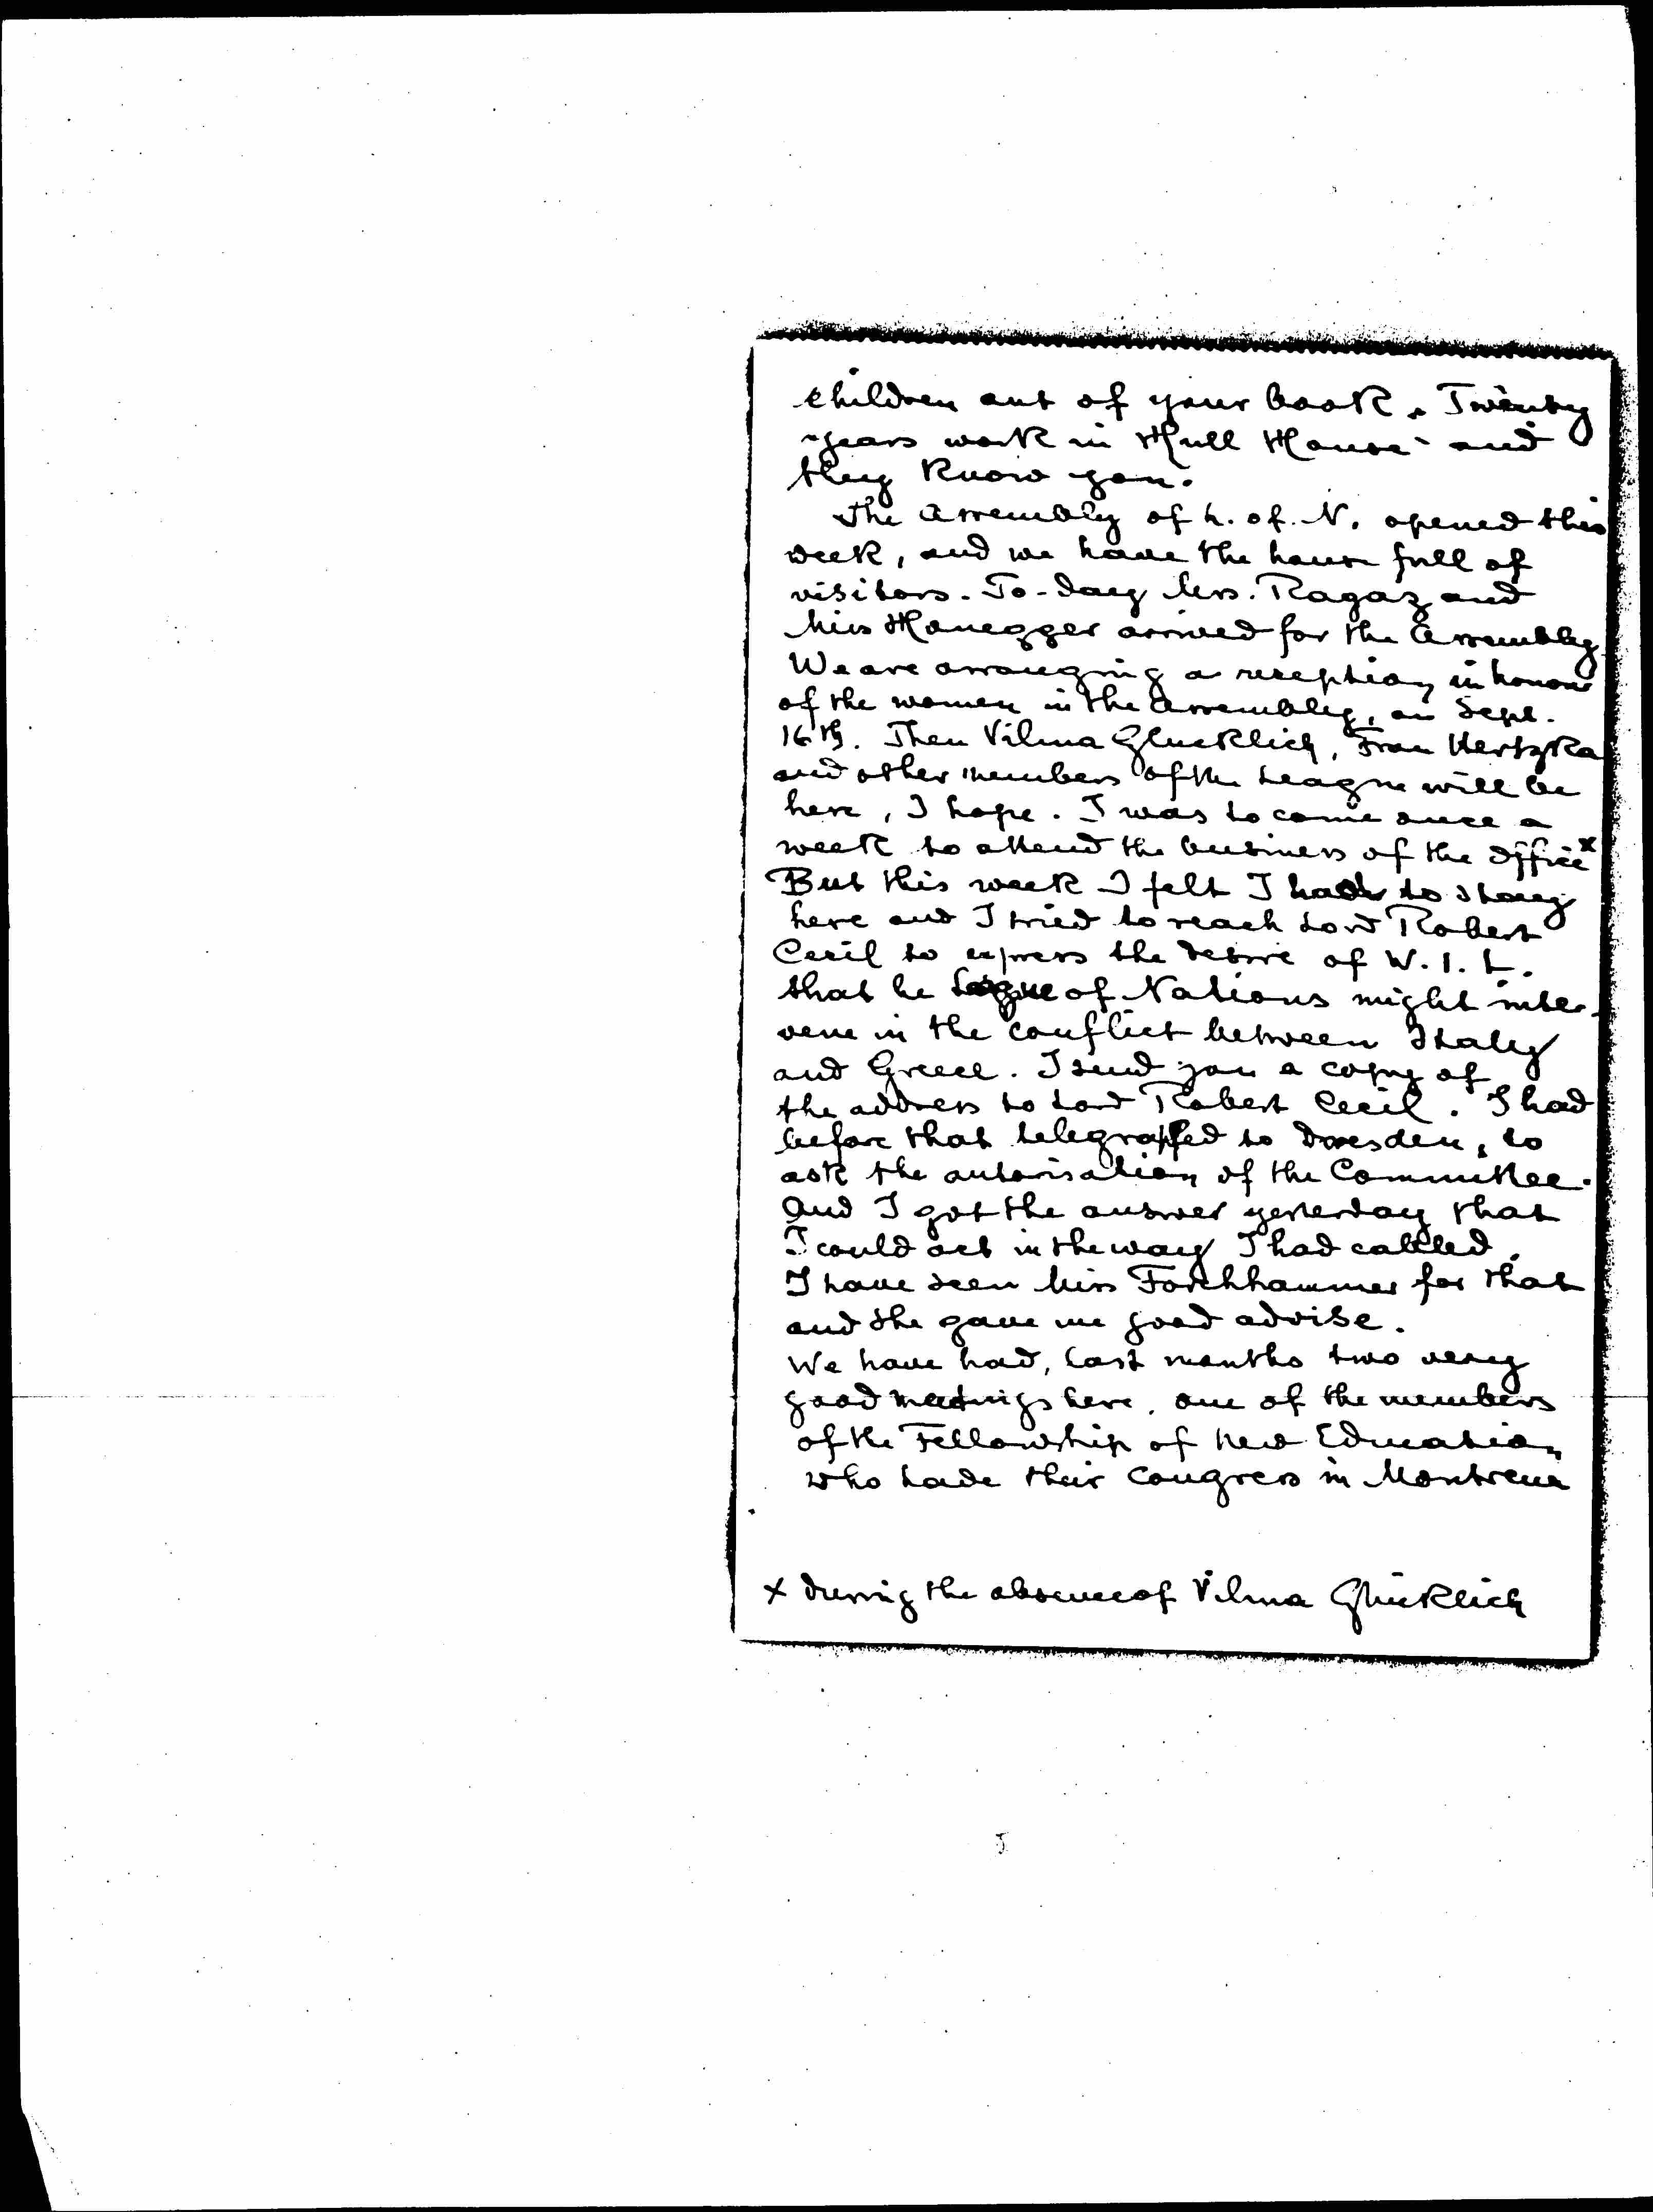 children out of your book „Twenty
years work in Hull House" and
they know you.
The Assembly of L. of. N. opened this
week, and we have the house full of
visitors. To-day Mrs. Ragaz and
Miss Honegger arrived for the Assembly.
We are arranging a reception in honour
of the women in the Assembly, on Sept.
16th. Then Vilma Glucklich, Frau Hertzka
and other members of the League will be
here, I hope. I was to come once a
week to attend the business of the office x
But this week I felt I had to stay
here and I tried to reach Lord Robert
Cecil to express the desire of W. I. L.
that he League of Nations might inter-
vene in the conflict between Italy
and Greece. I send you a copy of
the address to Lord Robert Cecil. I had
before that telegraphed to Dresden, to
ask the autorisation of the Committee.
And I got the answer yesterday that
I could act in the way I had cabled.
I have seen Miss Forchhammer for that
and she gave me good advise.
We have had, last months two very
good meetings here, one of the members
of the Fellowship of New Education
who hade their Congress in Montreux
x during the absence of Vilma Glücklich